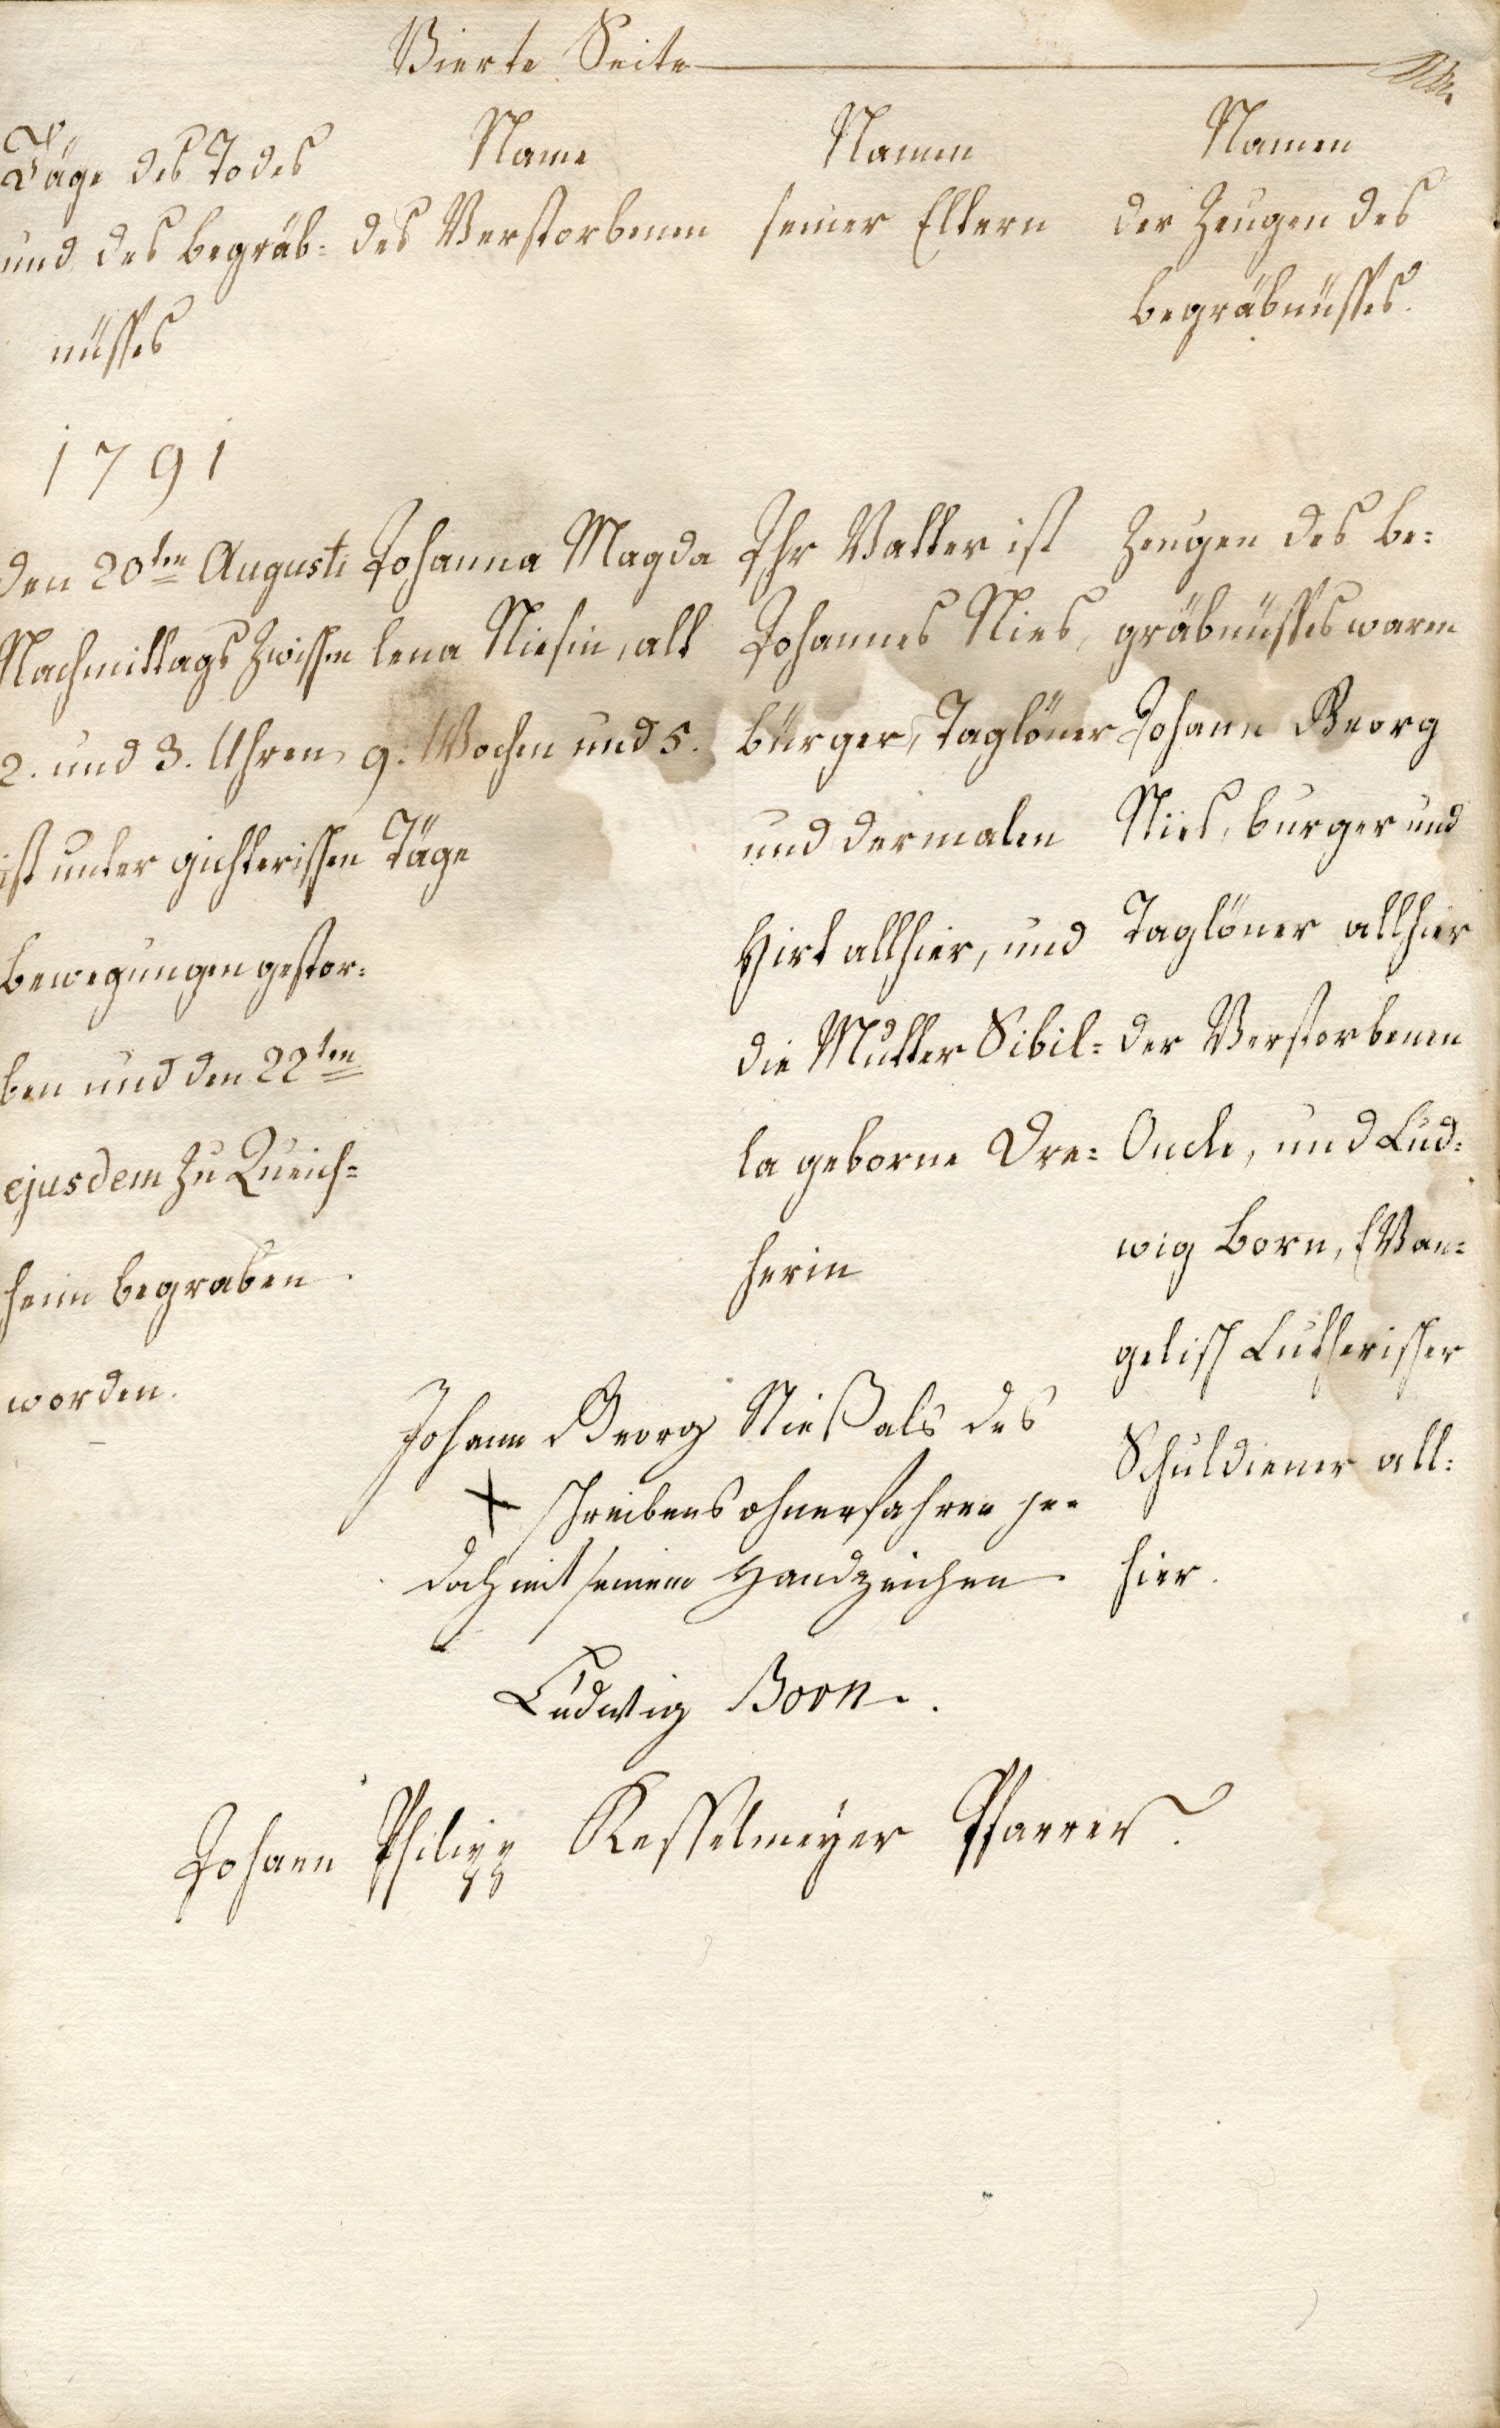 Vierte Seite
Täge des Todes
und des begräb=
nüsses
Name
des Verstorbenen
Namen
seiner Eltern
Namen
der Zeugen des
begräbnüsses.
1791
den 20ten Augusti
Nachmittags zwischen
2. und 3. Uhren
ist unter gichterischen
bewegungen gestor=
ben und den 22ten
ejusdem zu Queich=
heim begraben
worden.
Johanna Magda
lena Niesin, alt
9. Wochen und 5.
Täge
Ihr Vatter ist
Johannes Nies,
bürger, Taglöner
und dermalen
Hirt allhier, und
die Mutter Sibil=
la geborne Dre=
herin
Zeugen des be=
gräbnüsses waren
Johann Georg
Nies, burger und
Taglöner allhier
der Verstorbenen
Oncle, und Lud=
wig born, EVan=
gelisch Lutherischer
Schuldiener all=
hier.
Johann Georg Nieß als des
+ schreibens ohnerfahren je=
doch mit seinem Handzeichen
Ludwig Born.
Johann Philipp Kesselmeyer Pfarrer.